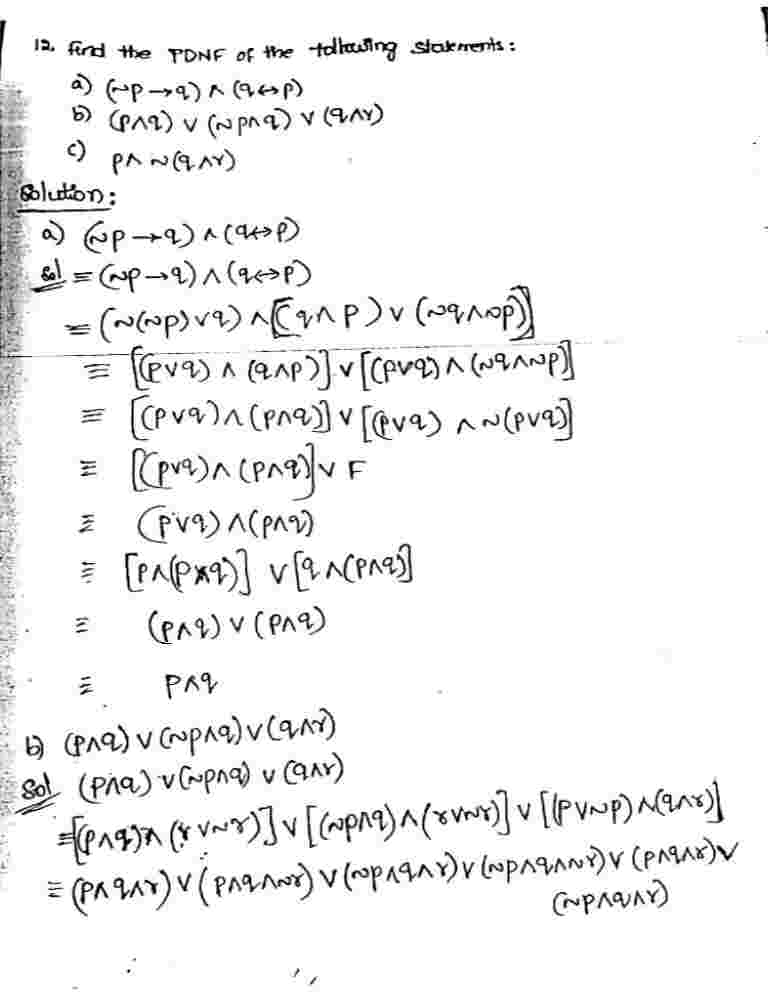 12. Find the PDNF of the following statements:
a) (~p → q) ∧ (q ↔ p)
b) (p∧q) ∨ (~p∧q) ∨ (q∧r)
c) p∧ ~(q∧r)
Solution:
a) (~p → q) ∧ (q ↔ p)
Sol ≡ (~p → q) ∧ (q ↔ p)
≡ (~(~p) ∨ q) ∧ [(q ∧ p) ∨ (~q ∧ ~p)]
≡ [(p∨q) ∧ (q∧p)] ∨ [(p∨q) ∧ (~q∧~p)]
≡ [(p∨q) ∧ (p∧q)] ∨ [(p∨q) ∧ ~(p∨q)]
≡ [(p∨q) ∧ (p∧q)] ∨ F
≡ (p∨q) ∧ (p∧q)
≡ [p∧(p∧q)] ∨ [q∧(p∧q)]
≡ (p∧q) ∨ (p∧q)
≡ p∧q
b) (p∧q) ∨ (~p∧q) ∨ (q∧r)
Sol (p∧q) ∨ (~p∧q) ∨ (q∧r)
≡ [(p∧q) ∧ (r∨~r)] ∨ [(~p∧q) ∧ (r∨~r)] ∨ [(p∨~p) ∧ (q∧r)]
≡ (p∧q∧r) ∨ (p∧q∧~r) ∨ (~p∧q∧r) ∨ (~p∧q∧~r) ∨ (p∧q∧r) ∨
(~p∧q∧r)